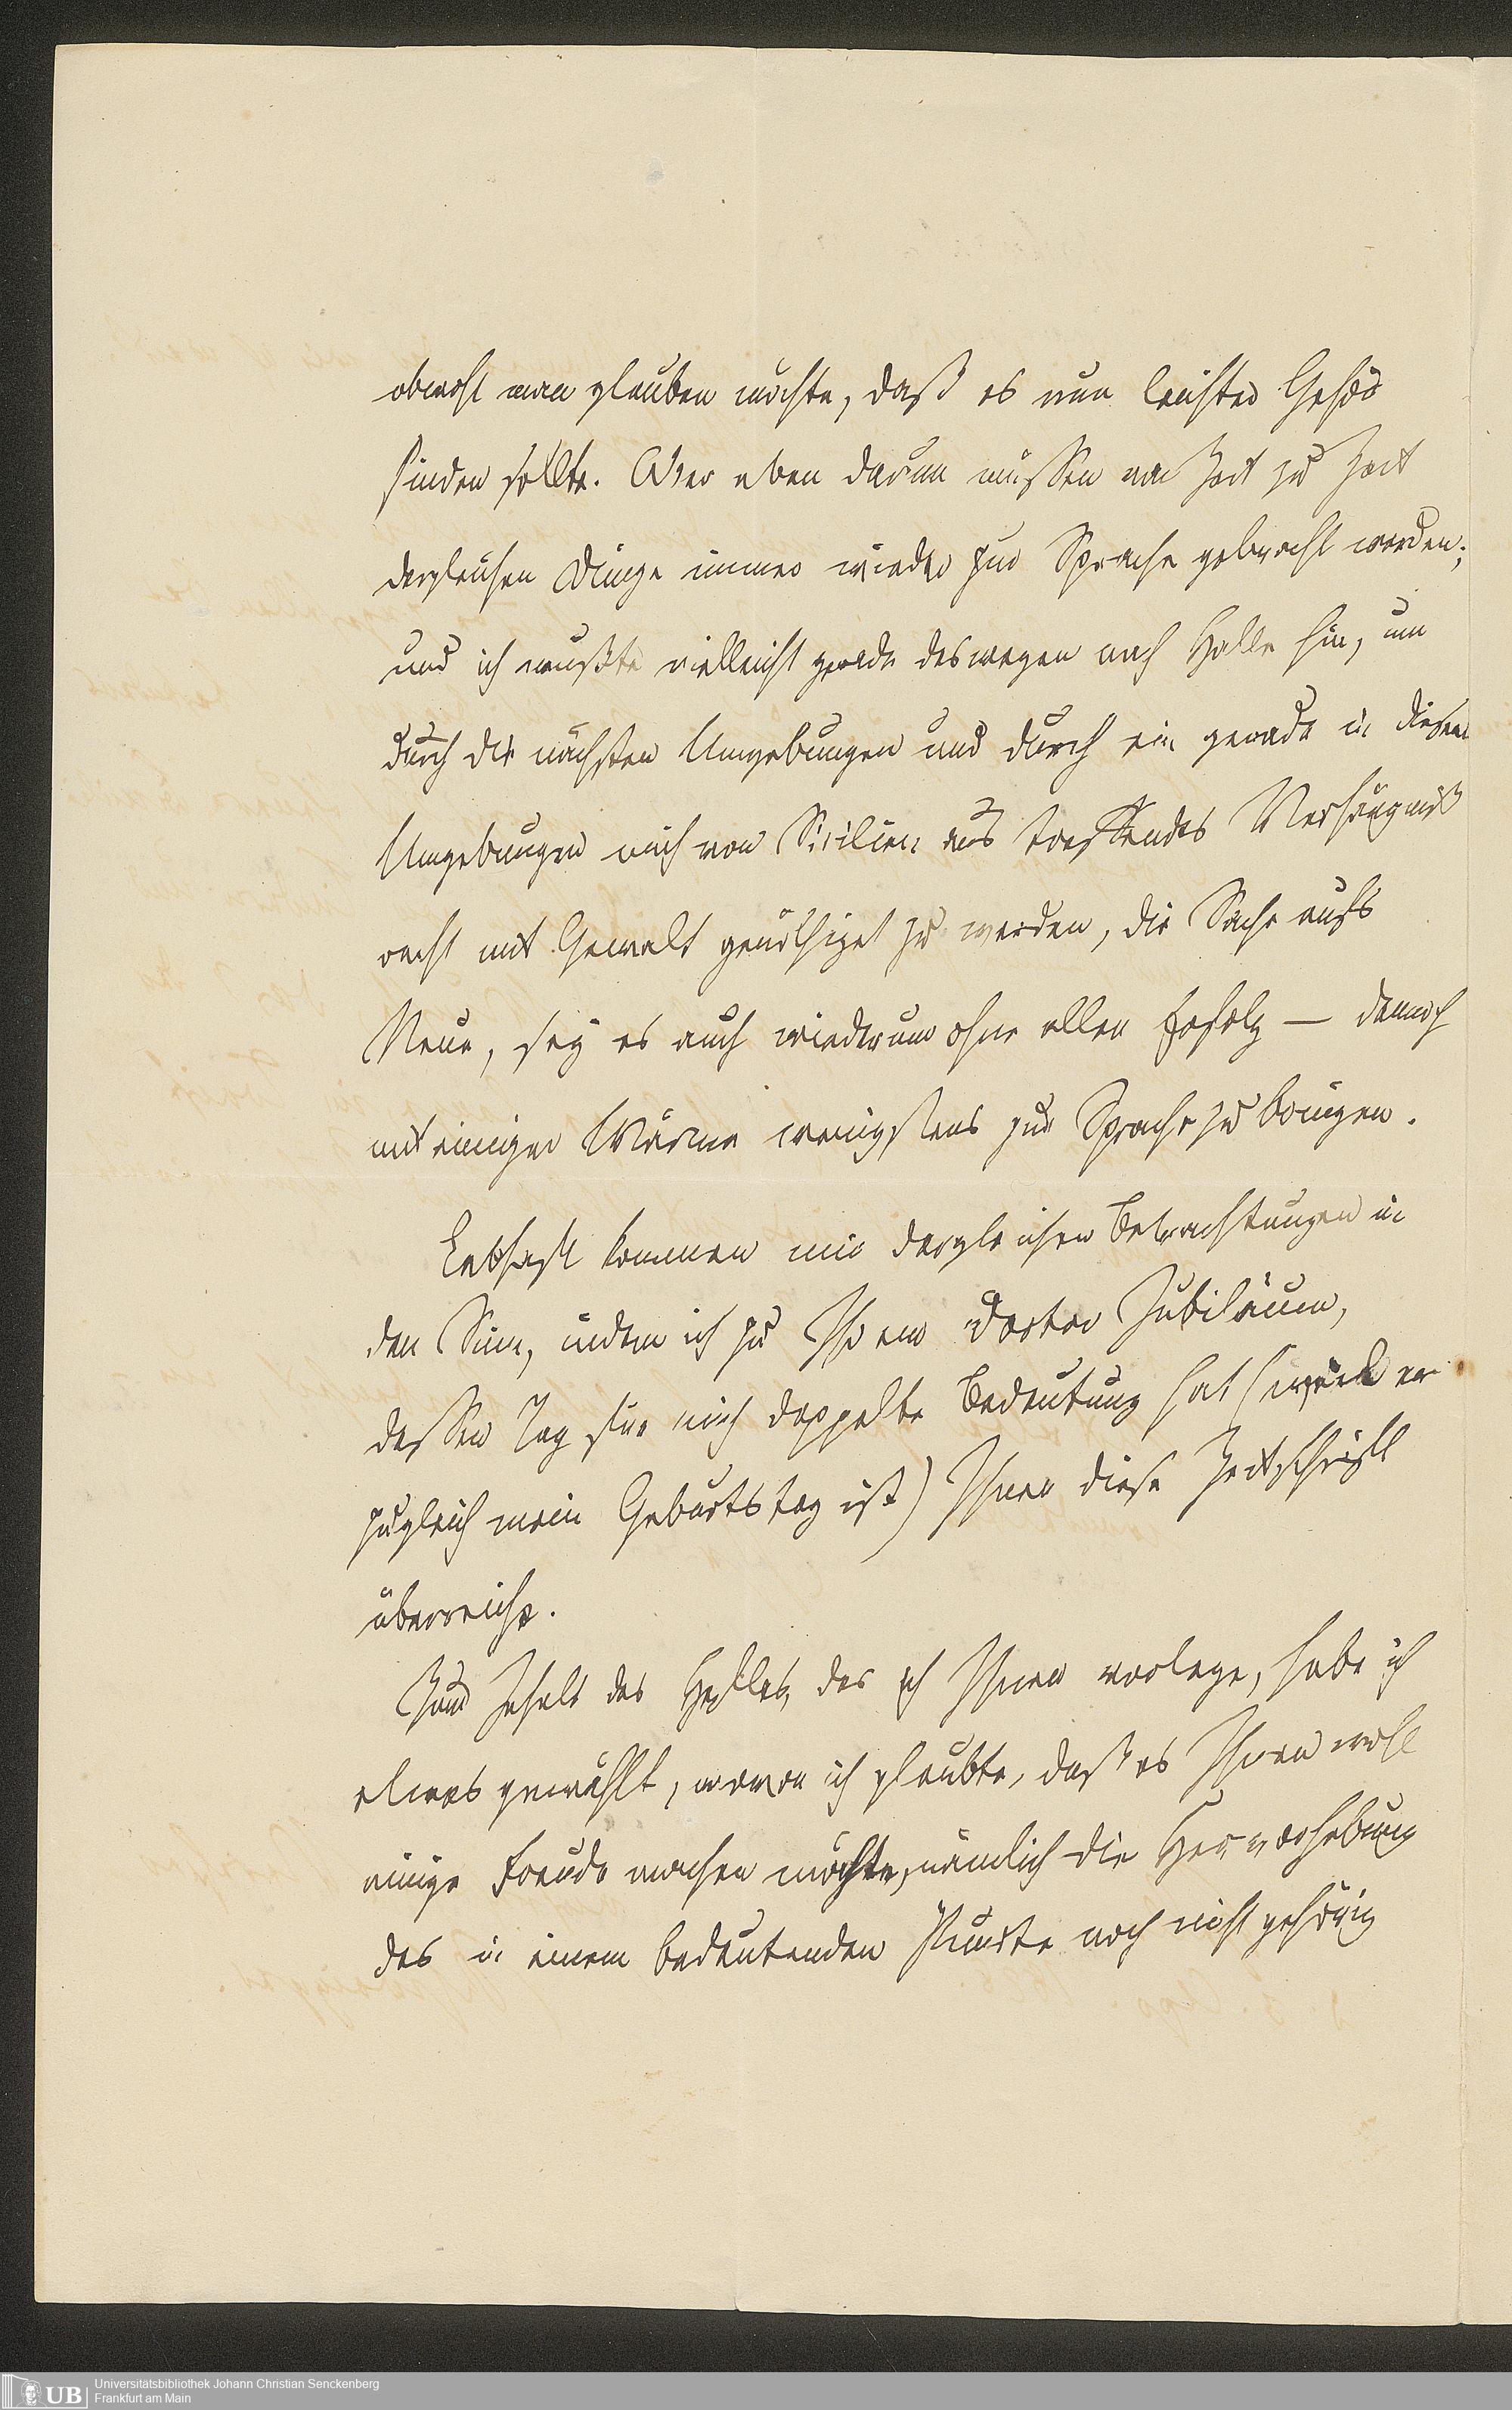 obwohl man glauben möchte, daß es nun leichter Gehör
finden sollte. Aber eben darum müssen von Zeit zu Zeit
dergleichen Dinge immer wieder zur Sprache gebracht werden;
und ich mußte vielleicht gerade deswegen nach Halle hin, um
durch die nächsten Umgebungen und durch ein gerade in diesen
Umgebungen mich von Sicilien aus treffendes Verhängniß
recht mit Gewalt genöthiget zu werden, die Sache aufs
Neue, sey es auch wiederum ohne allen Erfolg — dennoch
mit einiger Wärme wenigstens zur Sprache zu bringen.
Lebhaft kommen mir dergleichen Betrachtungen in
den Sinn, indem ich zu Ihrem Doctor Jubiläum,
dessen Tag für mich doppelte Bedeutung hat (weil er
zugleich mein Geburtstag ist) Ihnen diese Zeitschrift
überreiche.
Zum Inhalt des Heftes, das ich Ihnen vorlege, habe ich
etwas gewählt, wovon ich glaubte, daß es Ihnen wohl
einige Freude machen möchte, nämlich die Hervorhebung
des in einem bedeutenden Punkte noch nicht gehörig
Universitätsbibliothek Johann Christian Senckenberg
UB Frankfurt am Main